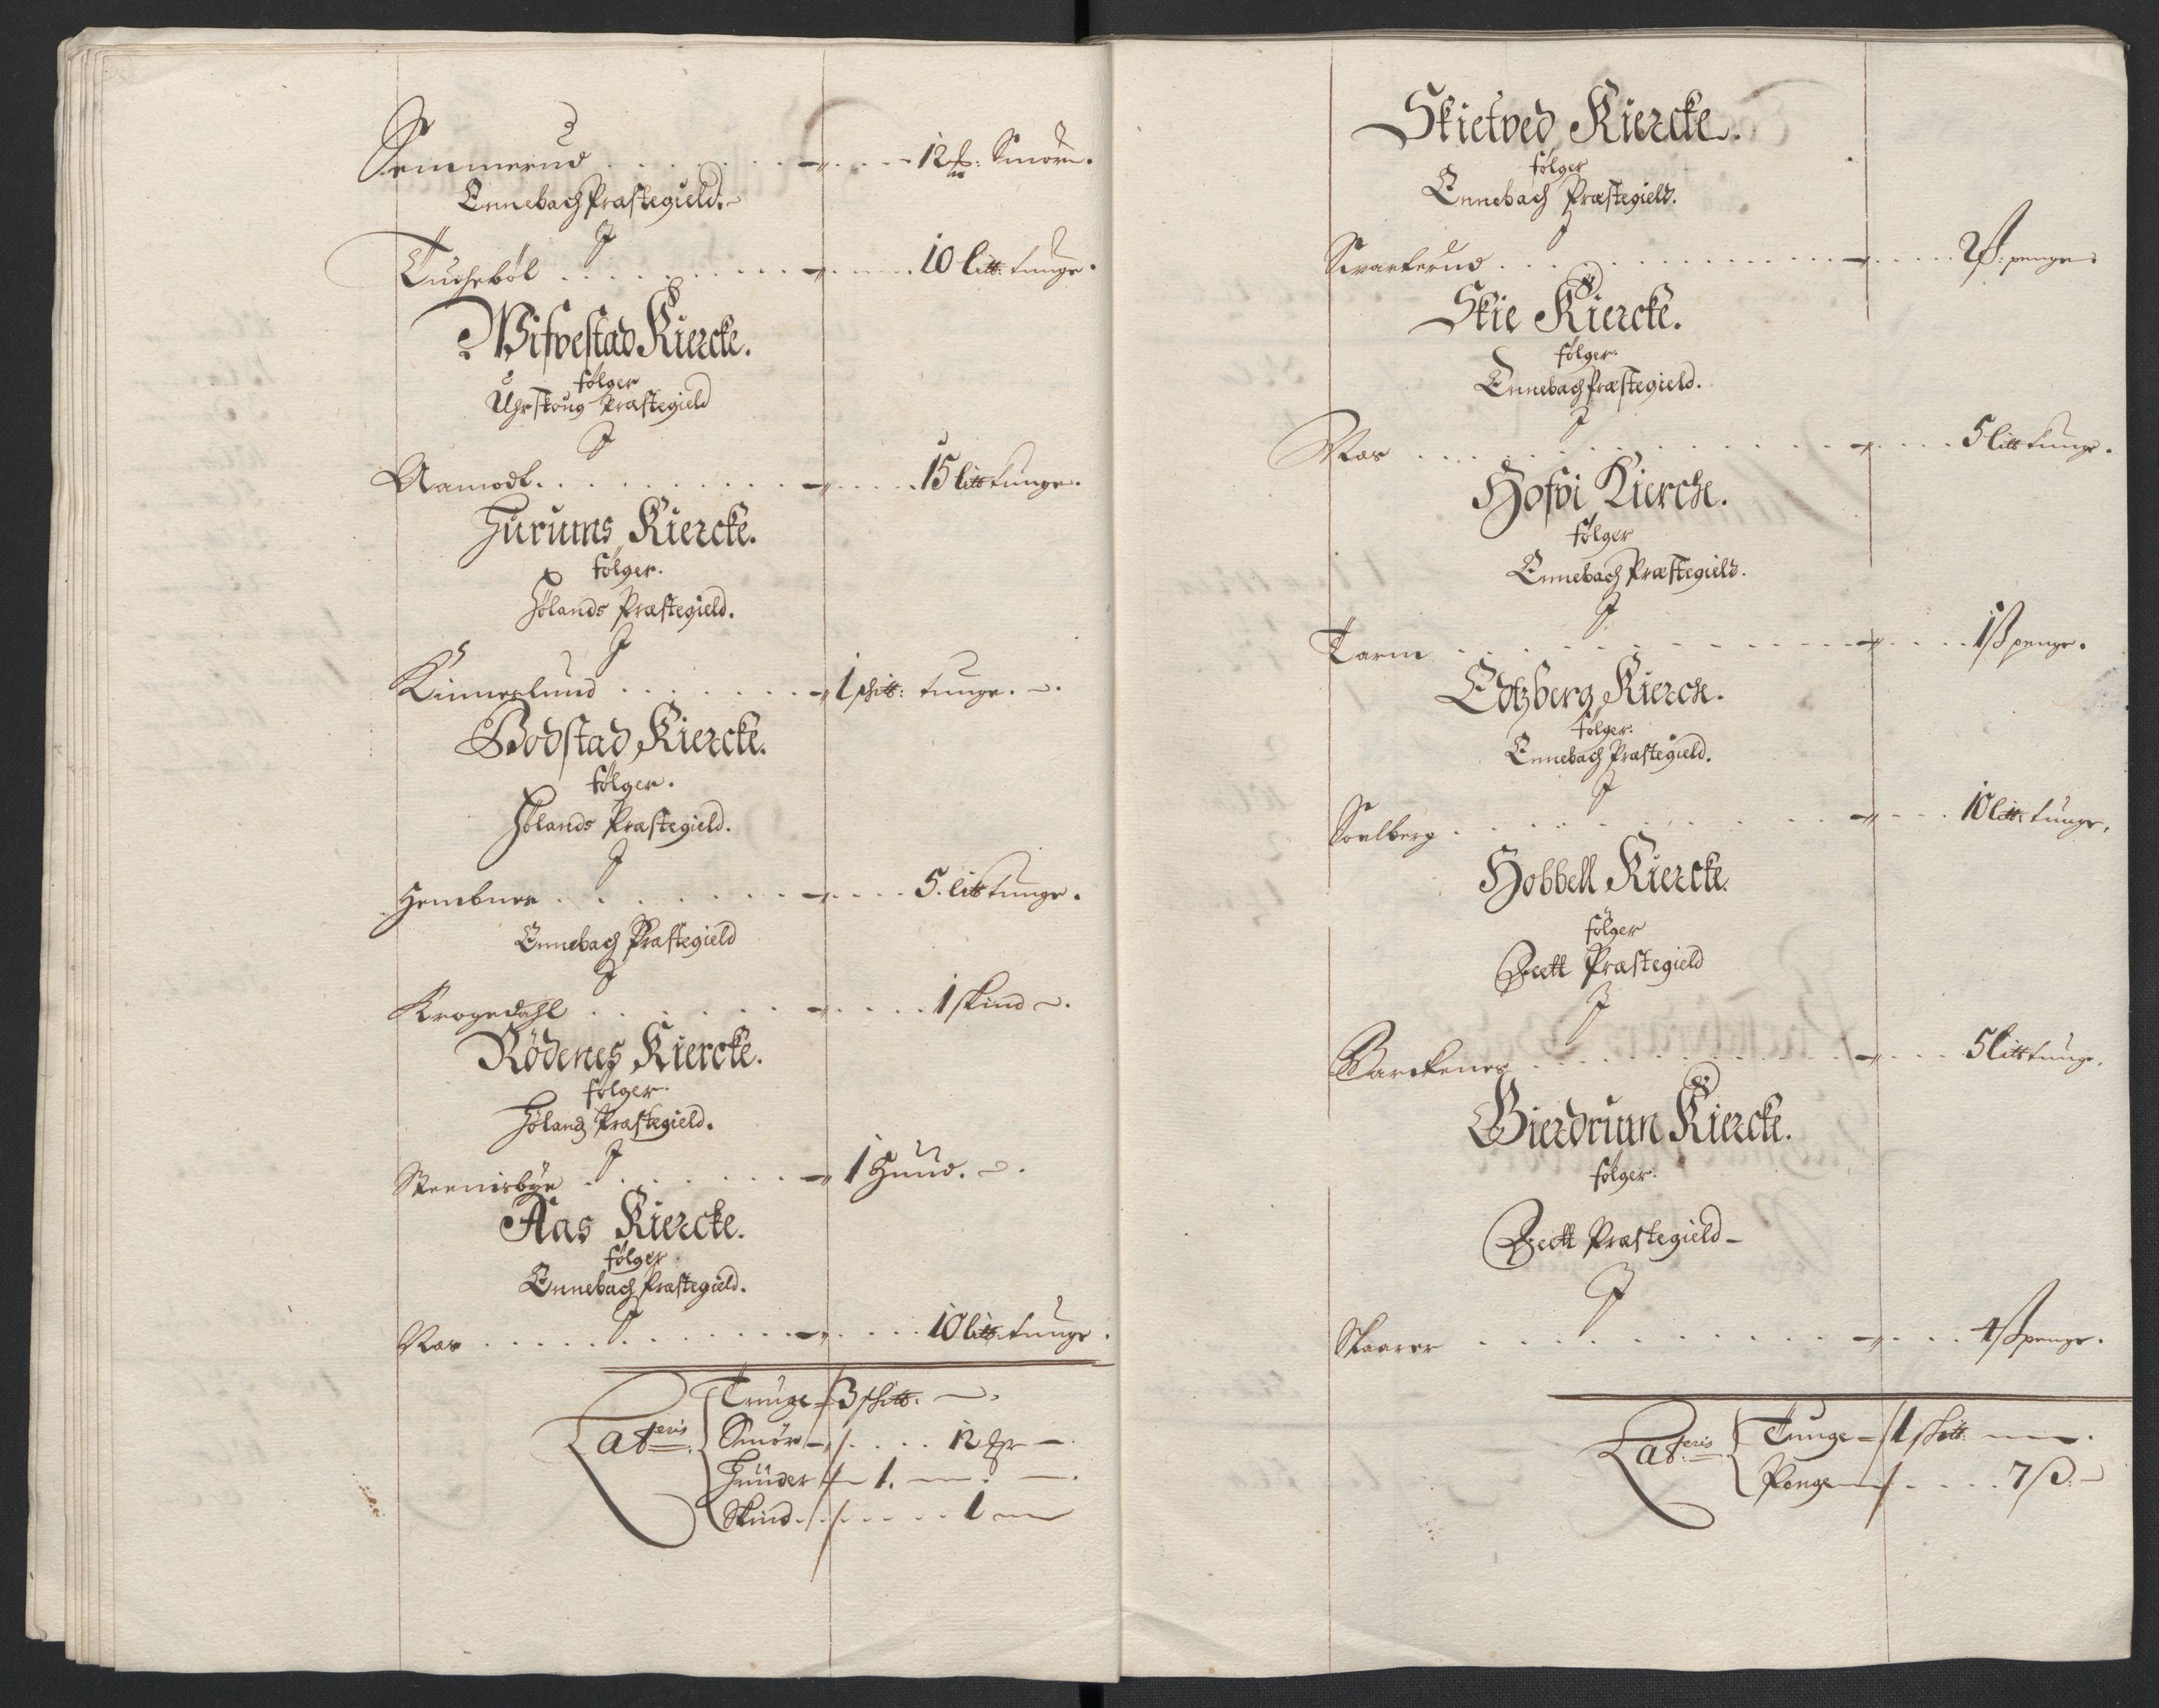 Semmerud . . . . . . - „ . . . 12 ℔: Smør.
Ennebach Præstegield.
J
Tuchebøl . . . . . . . - „ . . . 10 litt: tunge.
Wifvestad Kiercke.
følger
Uhrskoug Præstegield
J
Aamodt . . . . . . . - „ . . . 15 litt tunge.
Hurums Kiercke.
følger.
Hølands Præstegield.
J
Kinnerlund . . . . . . - „ 1 skitt: tunge.
Bodstad Kiercke.
følger.
Hølands Præstegield.
J
Hembnes . . . . . . - „ . . . 5. litt tunge.
Ennebach Præstegield
J
Krogedahl . . . . . . - „ . . . 1 skind
Rødenes Kiercke.
følger.
Høland Præstegield.
J
Steenisbye . . . . . . - „ 1 Huud.
Aas Kiercke.
følger
Ennebach Præstegield.
J
Aas . . . . . . . . - „ . . . 10 litt tunge.
Lateris Tunge - 3 skitt:
Smør - „ . . . . 12
Huuder - 1.
Skind . . . . . . 1
Skietved Kiercke.
følger
Ennebach Præstegield.
J
Svarterud . . . . . . . - „ . . . 2 ß: penge.
Skie Kiercke.
følger.
Ennebach Præstegield.
J
Aas . . . . . . . . - „ . . . 5 litt tunge.
Hofvi Kierche.
følger
Ennebach Præstegield.
J
Tarm . . . . . . . . - „ . . . 1 ß penge.
Edtzberg Kierche.
følger.
Ennebach Præstegield.
J
Soelberg . . . . . . . - „ . . . 10 litt: tunge.
Hobbell Kiercke.
følger
Beett Præstegield
J
Barckenes . . . . . . . - „ . . . 5 litt tunge.
Gierdrum Kiercke.
følger.
Beett Præstegield
J
Skaarer . . . . . . . - „ . . . 4 ß penge.
Lateris Tunge - 1 skitt:
Penge - „ . . . . 7 ß.